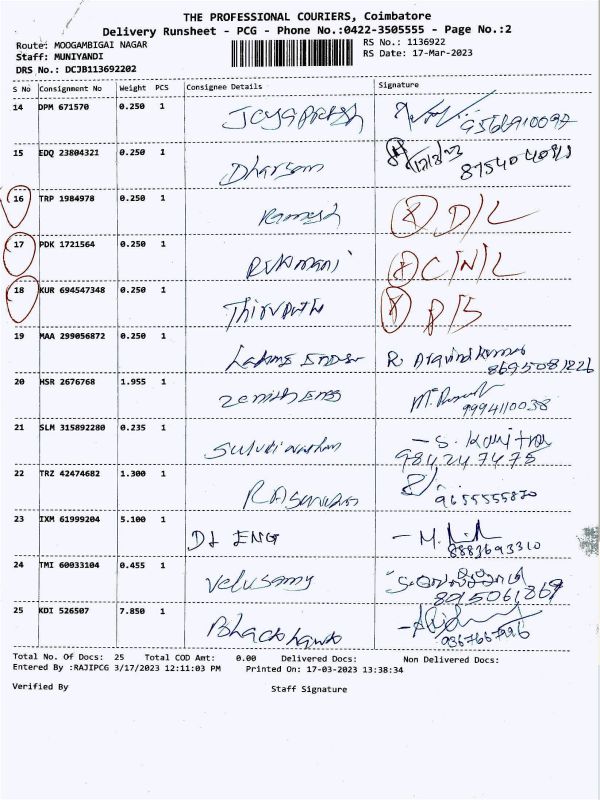 THE PROFESSIONAL COURIERS, Coimbatore
Delivery Runsheet - PCG - Phone No.:0422-3505555 - Page No.:2
Route: MOOGAMBIGAI NAGAR RS No.: 1136922
Staff: MUNIYANDI RS Date: 17-Mar-2023
DRS No.: DCJB113692202
S No Consignment No Weight PCS Consignee Details Signature
14 DPM 671570 0.250 1
15 EDQ 23804321 0.250 1 Dharsan 17/3/23
16 TRP 1984978 0.250 1 Ramesh D/L
17 PDK 1721564 0.250 1 Rukmani C/N/L
18 KUR 694547348 0.250 1
19 MAA 299056872 0.250 1 R. Aravind Kumar
8695081226
20 HSR 2676768 1.955 1 Zenith Engg
9994110038
21 SLM 315892280 0.235 1 - S. Kavitha
9842747475
22 TRZ 42474682 1.300 1
9655555870
23 IXM 61999204 5.100 1 DL ENG - M.
8883693310
24 TMI 60033104 0.455 1 Velusamy
8915061869
25 KDI 526507 7.850 1
9367667996
Total No. Of Docs: 25 Total COD Amt: 0.00 Delivered Docs: Non Delivered Docs:
Entered By :RAJIPCG 3/17/2023 12:11:03 PM Printed On: 17-03-2023 13:38:34
Verified By Staff Signature